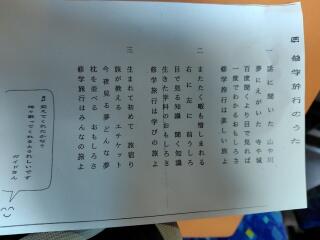 修学旅行のうた
一 話に聞いた 山や川
夢にえがいた 寺や城
百度聞くより目で見れば
一度でわかるおもしろさ
修学旅行は楽しい旅よ
二 またたく暇も惜しまれる
右に左に 前うしろ
目で見る知識 聞く知識
生きた学科のおもしろさ
修学旅行は学びの旅よ
三 生まれて初めて 旅宿り
旅が教える エチケット
今夜見る夢どんな夢
枕を並べる おもしろさ
修学旅行はみんなの旅よ